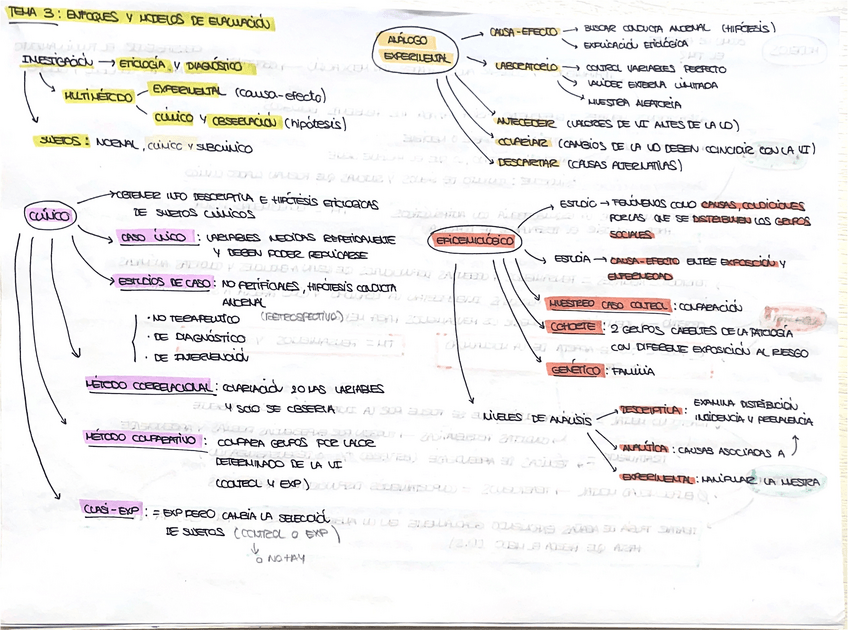 TEMA 3: ENFOQUES Y MODELOS DE EVALUACIÓN
INVESTIGACIÓN → ETIOLOGÍA Y DIAGNÓSTICO
MULTIMÉTODO
EXPERIMENTAL (causa-efecto)
CLÍNICO Y OBSERVACIÓN (hipótesis)
SUJETOS: NORMAL, CLÍNICO Y SUBCLÍNICO
ANÁLOGO
EXPERIMENTAL
CAUSA-EFECTO → BUSCAR CONDUCTA ANORMAL (HIPÓTESIS)
EXPLICACIÓN ETIOLÓGICA
LABORATORIO → CONTROL VARIABLES PERFECTO
VALIDEZ EXTERNA LIMITADA
MUESTRA ALEATORIA
ANTECEDER (VALORES DE VI ANTES DE LA VD)
COVARIAR (CAMBIOS DE LA VD DEBEN COINCIDIR CON LA VI)
DESCARTAR (CAUSAS ALTERNATIVAS)
CLÍNICO
OBTENER INFO DESCRIPTIVA E HIPÓTESIS ETIOLÓGICAS
DE SUJETOS CLÍNICOS
CASO ÚNICO: VARIABLES MEDIDAS REPETIDAMENTE
Y DEBEN PODER REPLICARSE
ESTUDIOS DE CASO: NO ARTIFICIALES, HIPÓTESIS CONDUCTA
ANORMAL
· NO TERAPEUTICO (RETROSPECTIVO)
· DE DIAGNÓSTICO
· DE INTERVENCIÓN
MÉTODO CORRELACIONAL: COVARIACIÓN 2 O MÁS VARIABLES
Y SOLO SE OBSERVA
MÉTODO COMPARATIVO: COMPARA GRUPOS POR VALOR
DETERMINADO DE LA VI
(CONTROL Y EXP)
CUASI-EXP: = EXP PERO CAMBIA LA SELECCIÓN
DE SUJETOS (CONTROL O EXP)
↓
o NO HAY
EPIDEMIOLÓGICO
ESTUDIO → FENÓMENOS COMO CAUSAS, CONDICIONES
POR LAS QUE SE DISTRIBUYEN LOS GRUPOS
SOCIALES
ESTUDIA → CAUSA-EFECTO ENTRE EXPOSICIÓN Y
ENFERMEDAD
MUESTREO CASO CONTROL: COMPARACIÓN
COHORTE: 2 GRUPOS CARENTES DE LA PATOLOGÍA
CON DIFERENTE EXPOSICIÓN AL RIESGO
GENÉTICO: FAMILIA
NIVELES DE ANÁLISIS
DESCRIPTIVA: EXAMINA DISTRIBUCIÓN
INCIDENCIA Y PREVALENCIA
ANALÍTICA: CAUSAS ASOCIADAS A
EXPERIMENTAL: MANIPULAR LA MUESTRA